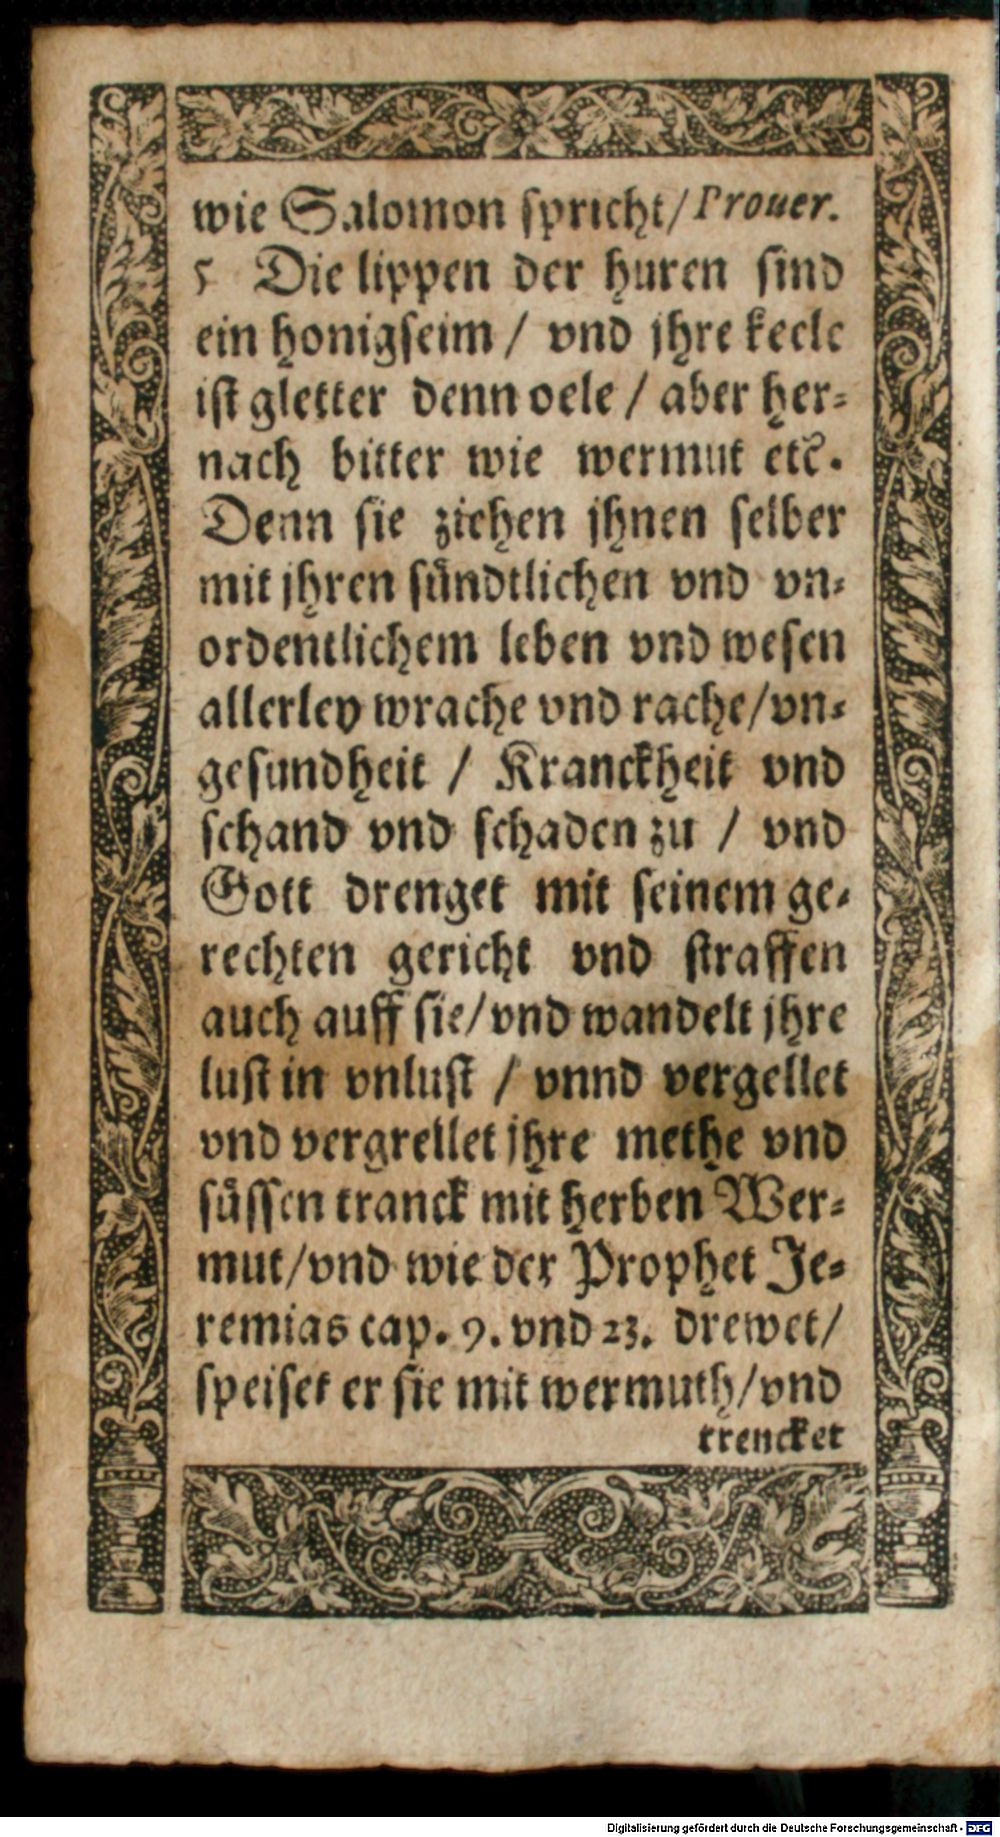 wie Salomon spricht/Prouer.
5 Die lippen der huren sind
ein honigseim / vnd jhre keele
ist gletter denn oele / aber her=
nach bitter wie wermut etc̃.
Denn sie ziehen jhnen selber
mit jhren sündtlichen vnd vn=
ordentlichem leben vnd wesen
allerley wrache vnd rache/vn=
gesundheit / Kranckheit vnd
schand vnd schaden zu / vnd
Gott drenget mit seinem ge=
rechten gericht vnd straffen
auch auff sie/vnd wandelt jhre
lust in vnlust / vnnd vergellet
vnd vergrellet jhre methe vnd
süssen tranck mit herben Wer=
mut/vnd wie der Prophet Je=
remias cap. 9. vnd 23. drewet/
speiset er sie mit wermuth/vnd
trencket
Digitalisierung gefördert durch die Deutsche Forschungsgemeinschaft - DFG